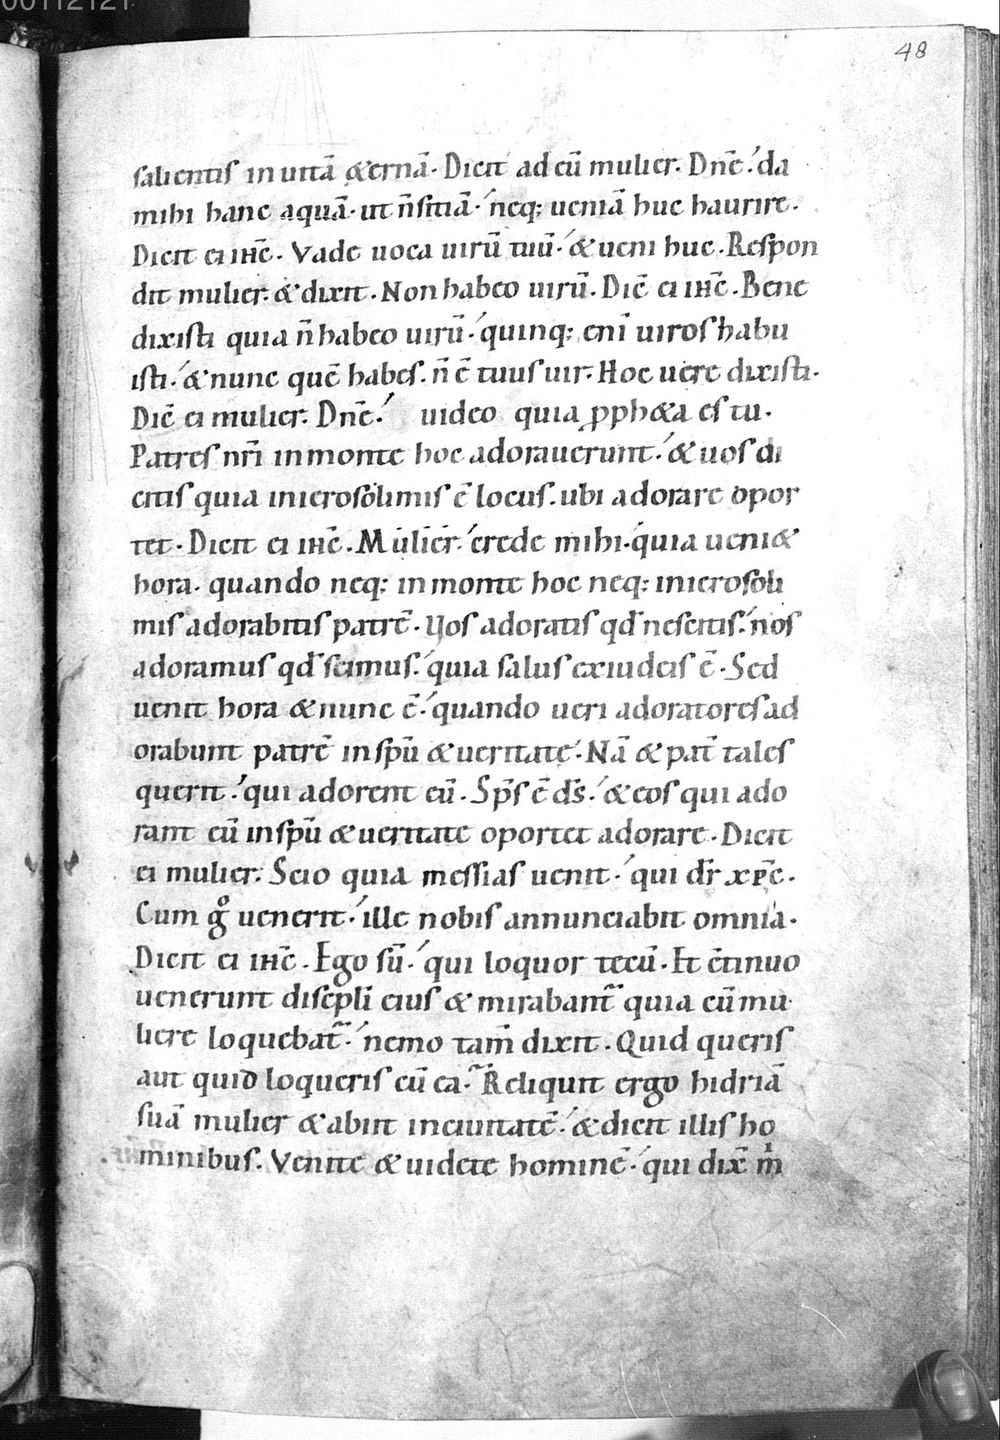 00112121
48
salientis in uitā &ernā. Dicit ad eū mulier. Dn̄e. da
mihi hanc aquā. ut n̄ sitiā. neq; ueniā huc haurire.
Dicit ei ih̄c. Vade uoca uirū tuū. & ueni huc. Respon
dit mulier. & dixit. Non habeo uirū. Dic̄ ei ih̄c. Bene
dixisti quia n̄ habeo uirū. quinq; enī uiros habu
isti. & nunc quē habes. n̄ ē tuus uir. Hoc uere dixisti.
Dic̄ ei mulier. Dn̄e. uideo quia pph&a es tu.
Patres nr̄i in monte hoc adorauerunt. & uos di
citis quia in ierosolimis ē locus. ubi adorare opor
tet. Dicit ei ih̄c. Mulier. crede mihi. quia ueni&
hora. quando neq; in monte hoc neq; in ierosoli
mis adorabitis patrē. Uos adoratis qd̄ nescitis. nos
adoramus qd̄ scimus. quia salus ex iudeis ē. Sed
uenit hora & nunc ē. quando ueri adoratores ad
orabunt patrē in sp̄u & ueritate. Nā & pat̄ tales
querit. qui adorent eū. Sp̄s ē d̄s. & eos qui ado
rant eū in sp̄u & ueritate oportet adorare. Dicit
ei mulier. Scio quia messias uenit. qui dr̄ xp̄c.
Cum gͦ uenerit. ille nobis annunciabit omnia.
Dicit ei ih̄c. Ego sū. qui loquor tecū. Et c̄tinuo
uenerunt discipli̅ eius & mirabant̄ quia cū mu
liere loquebat̄. nemo tam̄ dixit. Quid queris
aut quid loqueris cū ea. Reliquit ergo hidriā
suā mulier & abiit in ciuitatē. & dicit illis ho
minibus. Venite & uidete hominē. qui dix̄ mͥ